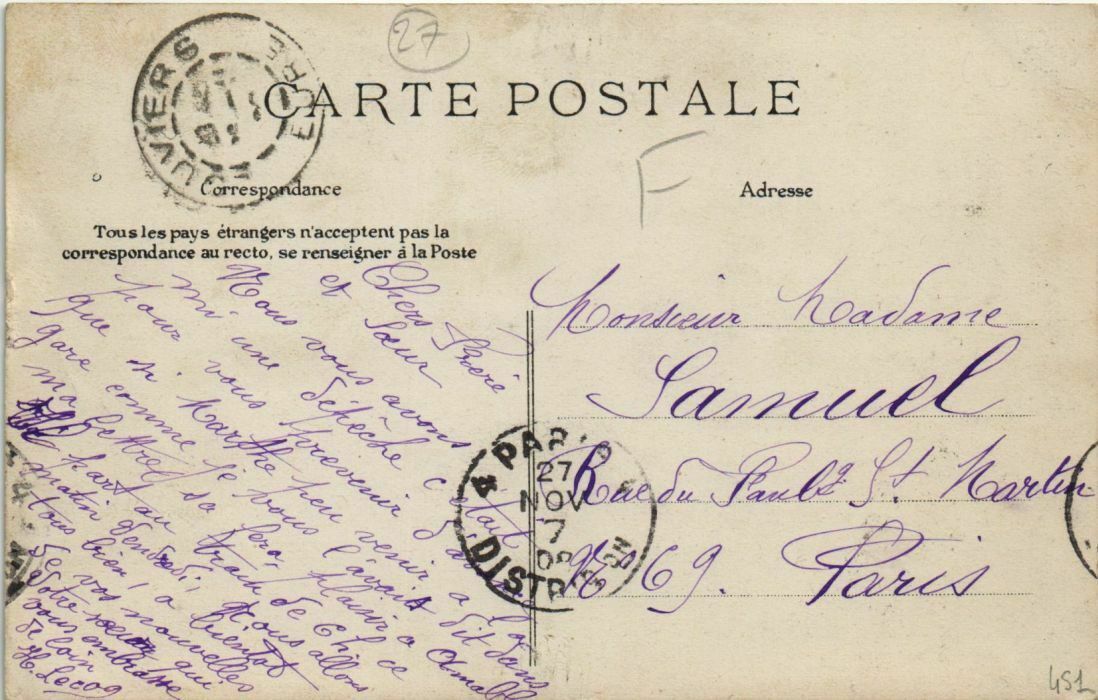 27
LOUVIERS
EURE
CARTE POSTALE
F
Correspondance
Adresse
Tous les pays étrangers n'acceptent pas la
correspondance au recto, se renseigner à la Poste
Chers Frère
et Sœur
Nous vous avons
mi une dépêche c'était
pour vous prévenir d'a
que si Marthe peu venir a la
gare comme je vous l'avait dit dans
ma lettre sa fera plaisir a
part au train de 6 h ce
matin vendredi, Nous allons
tous bien, a bientôt
de vos nouvelles
Votre sœur qui
vous embrasse
de loin
H. Lecoq
Monsieur Madame
Samuel
Rue du Faubg St Martin
No 69. Paris
4 PARIS 4
27
NOV
7
09
DISTRIBUTION
451